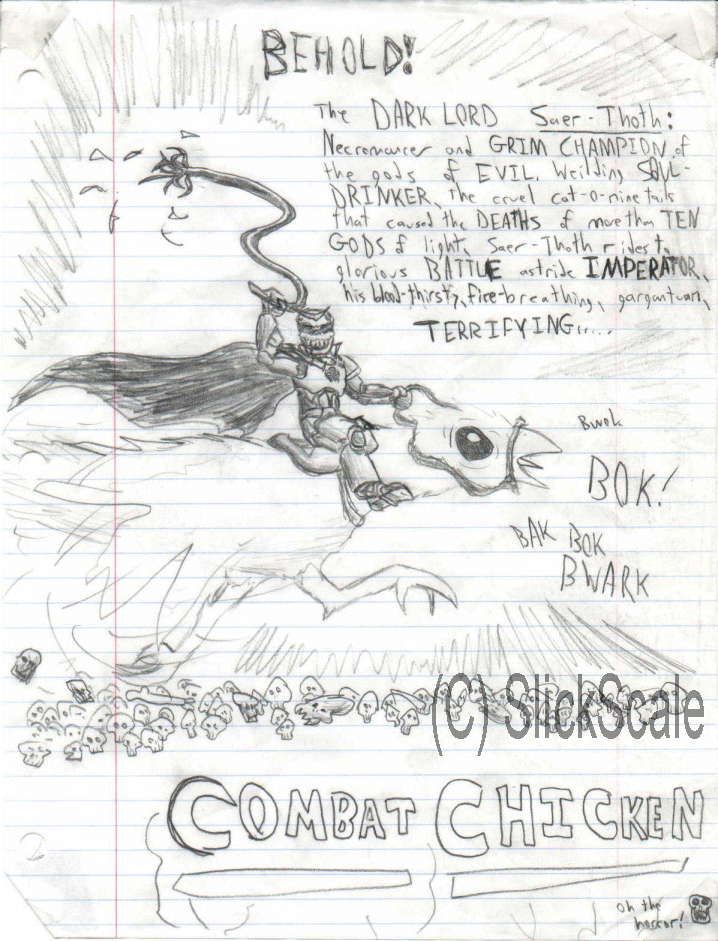 BEHOLD!
The DARK LORD Saer-Thoth:
Necromancer and GRIM CHAMPION of
the gods of EVIL. Weilding SOUL-
DRINKER, the cruel cat-o-nine tails
that caused the DEATHS of more than TEN
GODS of light, Saer-Thoth rides to
glorious BATTLE astride IMPERATOR,
his blood-thirsty, fire-breathing, gargantuan,
TERRIFYING.....
Bwok
BOK!
BAK BOK
BWARK
(C) SlickScale
COMBAT CHICKEN
oh the
horror!